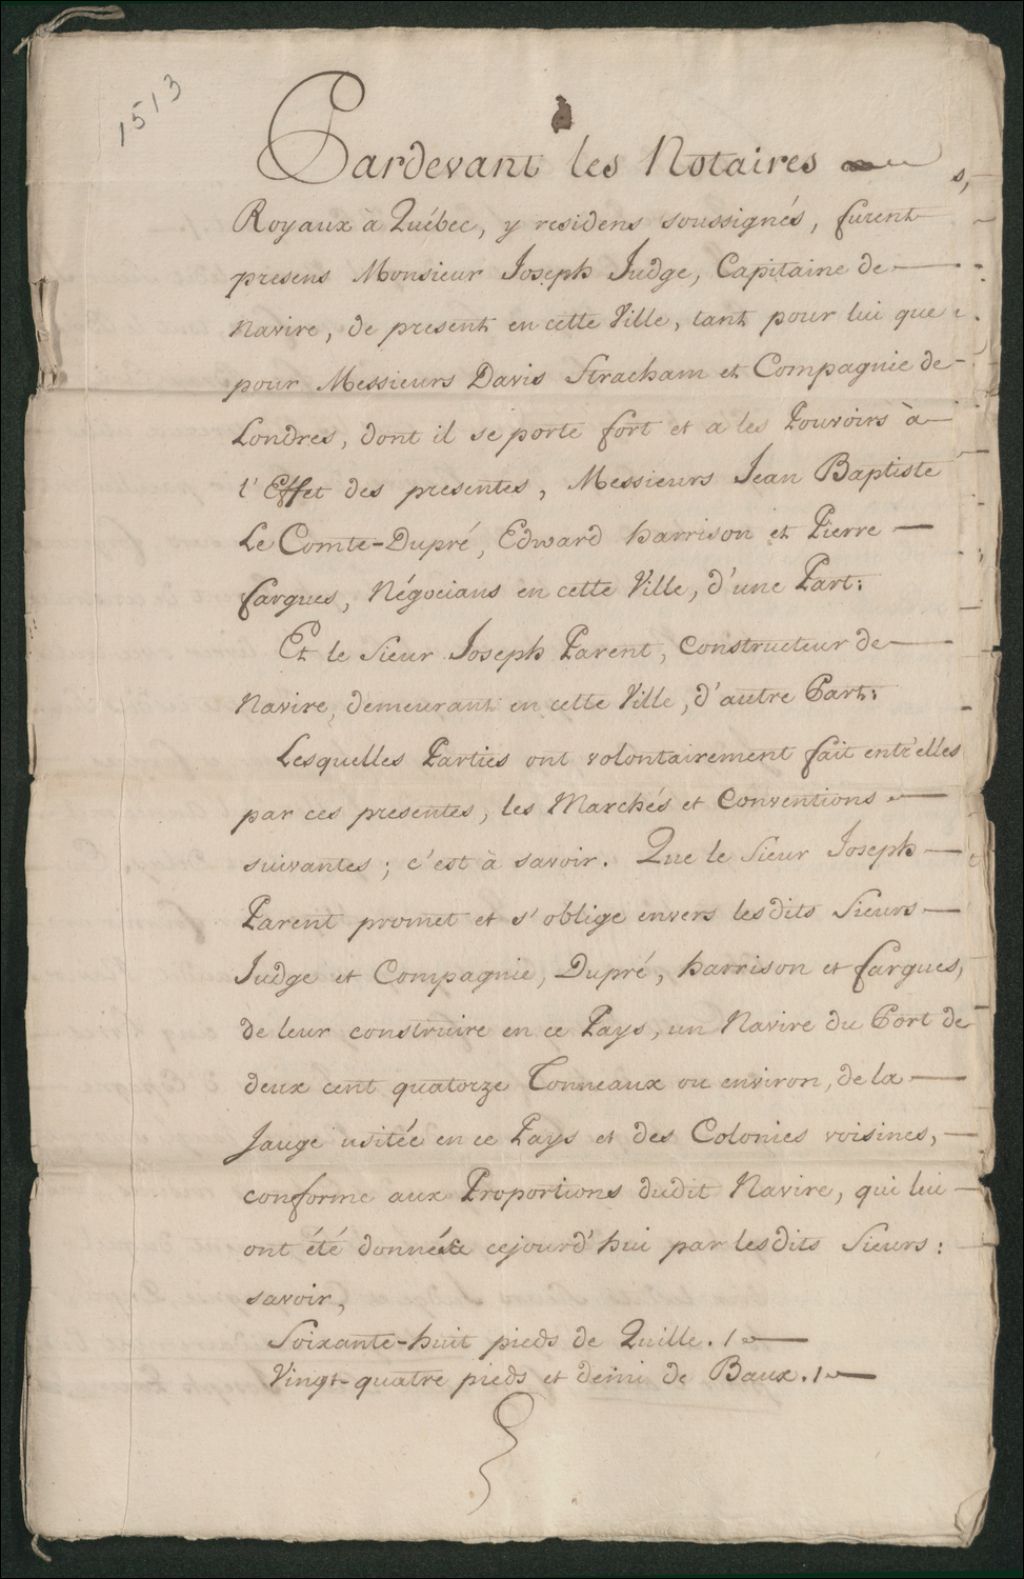 1513
Pardevant les Notaires
Royaux à Québec, y residens soussignés, furent
presens Monsieur Joseph Judge, Capitaine de
Navire, de present en cette Ville, tant pour lui que
pour Messieurs Davis Stracham et Compagnie de
Londres, dont il se porte fort et a les Pouvoirs à
l'Effet des presentes, Messieurs Jean Baptiste
Le Comte-Dupré, Edward harrison et Pierre
fargues, Négocians en cette Ville, d'une Part:
Et le Sieur Joseph Parent, Constructeur de
Navire, demeurant en cette Ville, d'autre Part:
Lesquelles Parties ont volontairement fait entr'elles
par ces presentes, les Marchés et Conventions
suivantes; c'est à savoir. Que le Sieur Joseph
Parent promet et s'oblige envers lesdits Sieurs
Judge et Compagnie, Dupré, harrison et fargues,
de leur construire en ce Pays, un Navire du Port de
deux cent quatorze Tonneaux ou environ, de la
Jauge usitée en ce Pays et des Colonies voisines,
conforme aux Proportions dudit Navire, qui lui
ont été données cejourd'hui par lesdits Sieurs:
savoir,
Soixante-huit pieds de Quille./.
Vingt-quatre pieds et demi de Baux./.